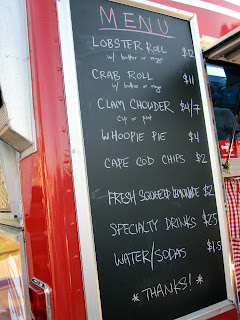 MENU
LOBSTER ROLL $12
w/ butter or mayo
CRAB ROLL $11
w/ butter or mayo
CLAM CHOWDER $4/7
cup or pint
WHOOPIE PIE $4
CAPE COD CHIPS $2
FRESH SQUEEZED LEMONADE $2
SPECIALTY DRINKS $2.5
WATER/SODAS $1.5
*THANKS!*